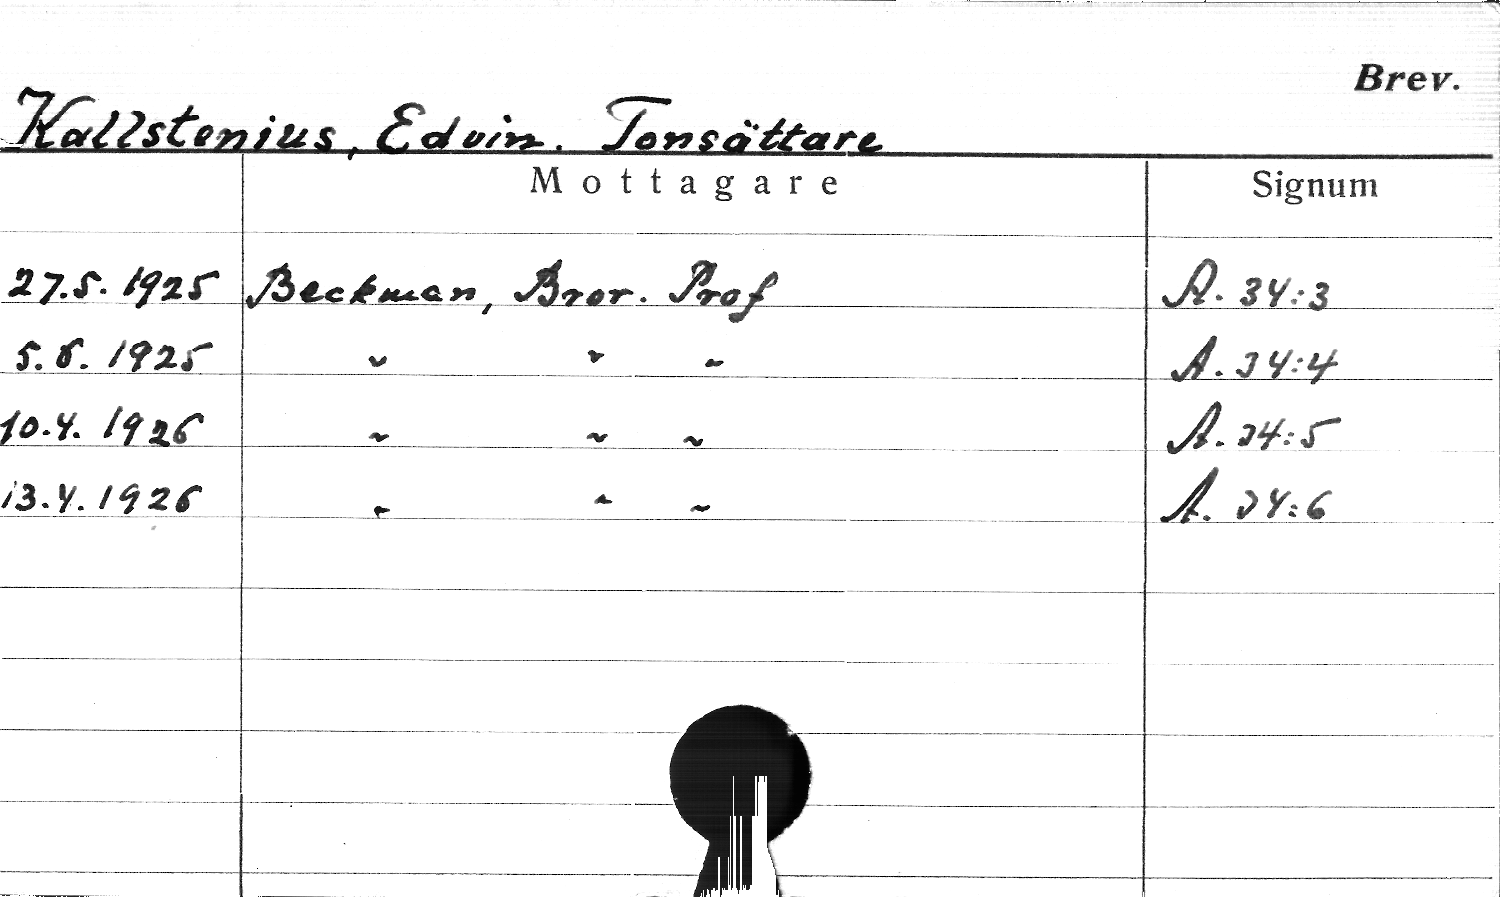 Brev.
Kallstenius, Edvin. Tonsättare
Mottagare Signum
27.5. 1925 Beckman, Bror. Prof A. 34:3
5.6. 1925 " " " A. 34:4
10.4. 1926 " " " A. 34:5
13.4. 1926 " " " A. 34:6